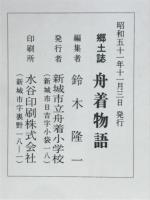 昭和五十一年十一月三日 発行
郷土誌 舟着物語
編集者 鈴木隆一
発行者 新城市立舟着小学校
(新城市日吉字小袋一八)
印刷所 水谷印刷株式会社
(新城市字裏野一八-一)